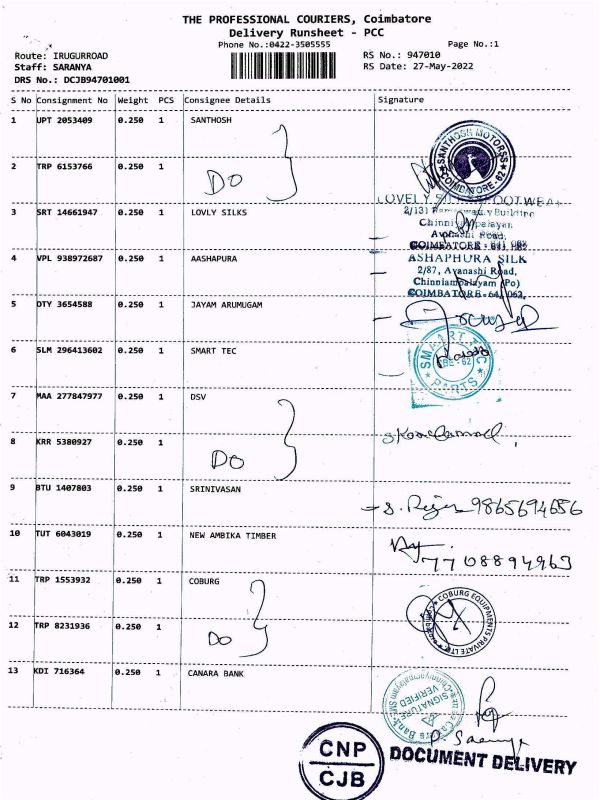 THE PROFESSIONAL COURIERS, Coimbatore
Delivery Runsheet - PCC
Phone No.:0422-3505555
Page No.:1
Route: IRUGURROAD
RS No.: 947010
Staff: SARANYA
RS Date: 27-May-2022
DRS No.: DCJB94701001
S No Consignment No Weight PCS Consignee Details Signature
1 UPT 2053409 0.250 1 SANTHOSH
SANTHOSH MOTORSS
COIMBATORE - 62
2 TRP 6153766 0.250 1 DO
LOVELY SILK FOOTWEAR
3 SRT 14661947 0.250 1 LOVLY SILKS
2/131 Building
Chinniyampalayam,
Avanashi Road,
COIMBATORE - 641 062
4 VPL 938972687 0.250 1 AASHAPURA
ASHAPHURA SILK
2/87, Avanashi Road,
Chinniampalayam (Po)
COIMBATORE - 641 062,
5 DTY 3654588 0.250 1 JAYAM ARUMUGAM
6 SLM 296413602 0.250 1 SMART TEC
SMART TEC
CBE - 62
PARTS
7 MAA 277847977 0.250 1 DSV
8 KRR 5380927 0.250 1 DO
9 BTU 1407803 0.250 1 SRINIVASAN
9865694656
10 TUT 6043019 0.250 1 NEW AMBIKA TIMBER
7708894963
11 TRP 1553932 0.250 1 COBURG
COBURG EQUIPMENTS PRIVATE LTD.
12 TRP 8231936 0.250 1 DO
13 KDI 716364 0.250 1 CANARA BANK
SIGNATURE
VERIFIED
CNP
CJB
DOCUMENT DELIVERY